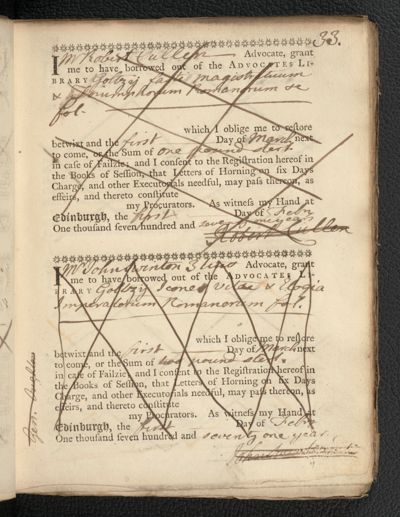 33.
I Mr Robert Cullen Advocate, grant
me to have borrowed out of the ADVOCATES LI-
BRARY Goltzij fasti magistratuum
& Triumphorum Romanorum &c
fol.
which I oblige me to reſtore
betwixt and the first Day of March next
to come, or the Sum of one pound sterl.
in caſe of Failzie; and I conſent to the Regiſtration hereof in
the Books of Seſſion, that Letters of Horning on ſix Days
Charge, and other Executorials needful, may paſs thereon, as
effeirs, and thereto conſtitute
my Procurators. As witneſs my Hand at
Edinburgh, the first Day of Febry
One thouſand ſeven hundred and seventy one years
Robert Cullen
I Mr John Swinton Advocate, grant
me to have borrowed out of the ADVOCATES LI-
BRARY Goltzij Icones vitae & Elogia
Imperatorum Romanorum fol.
which I oblige me to reſtore
betwixt and the first Day of March next
to come, or the Sum of two pound sterl.
in caſe of Failzie; and I conſent to the Regiſtration hereof in
the Books of Seſſion, that Letters of Horning on ſix Days
Charge, and other Executorials needful, may paſs thereon, as
effeirs, and thereto conſtitute
my Procurators. As witneſs my Hand at
Edinburgh, the first Day of Febry
One thouſand ſeven hundred and seventy one year